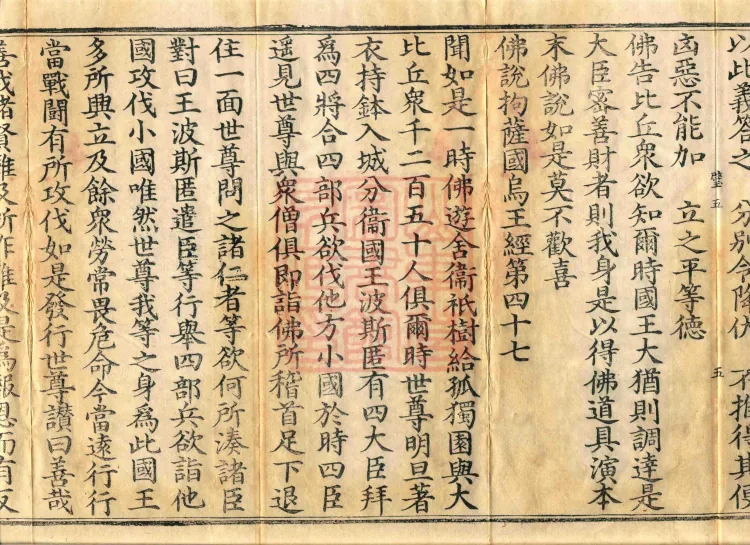 以此義答之　分別令降伏　不得其便
凶惡不能加　立之平等德
璧五　五
佛告比丘衆欲知爾時國王大猶則調達是
大臣密善財者則我身是以得佛道具演本
末佛說如是莫不歡喜
佛說拘薩國烏王經第四十七
聞如是一時佛遊舍衞祇樹給孤獨園與大
比丘衆千二百五十人俱爾時世尊明旦著
衣持鉢入城分衞國王波斯匿有四大臣拜
爲四將合四部兵欲伐他方小國於時四臣
遥見世尊與衆僧俱即詣佛所稽首足下退
住一面世尊問之諸仁者等欲何所湊諸臣
對曰王波斯匿遣臣等行舉四部兵欲詣他
國攻伐小國唯然世尊我等之身爲此國王
多所興立及餘衆勞常畏危命今當遠行行
當戰鬪有所攻伐如是發行世尊讃曰善哉
善哉諸賢難及所作難及是爲報恩而有反